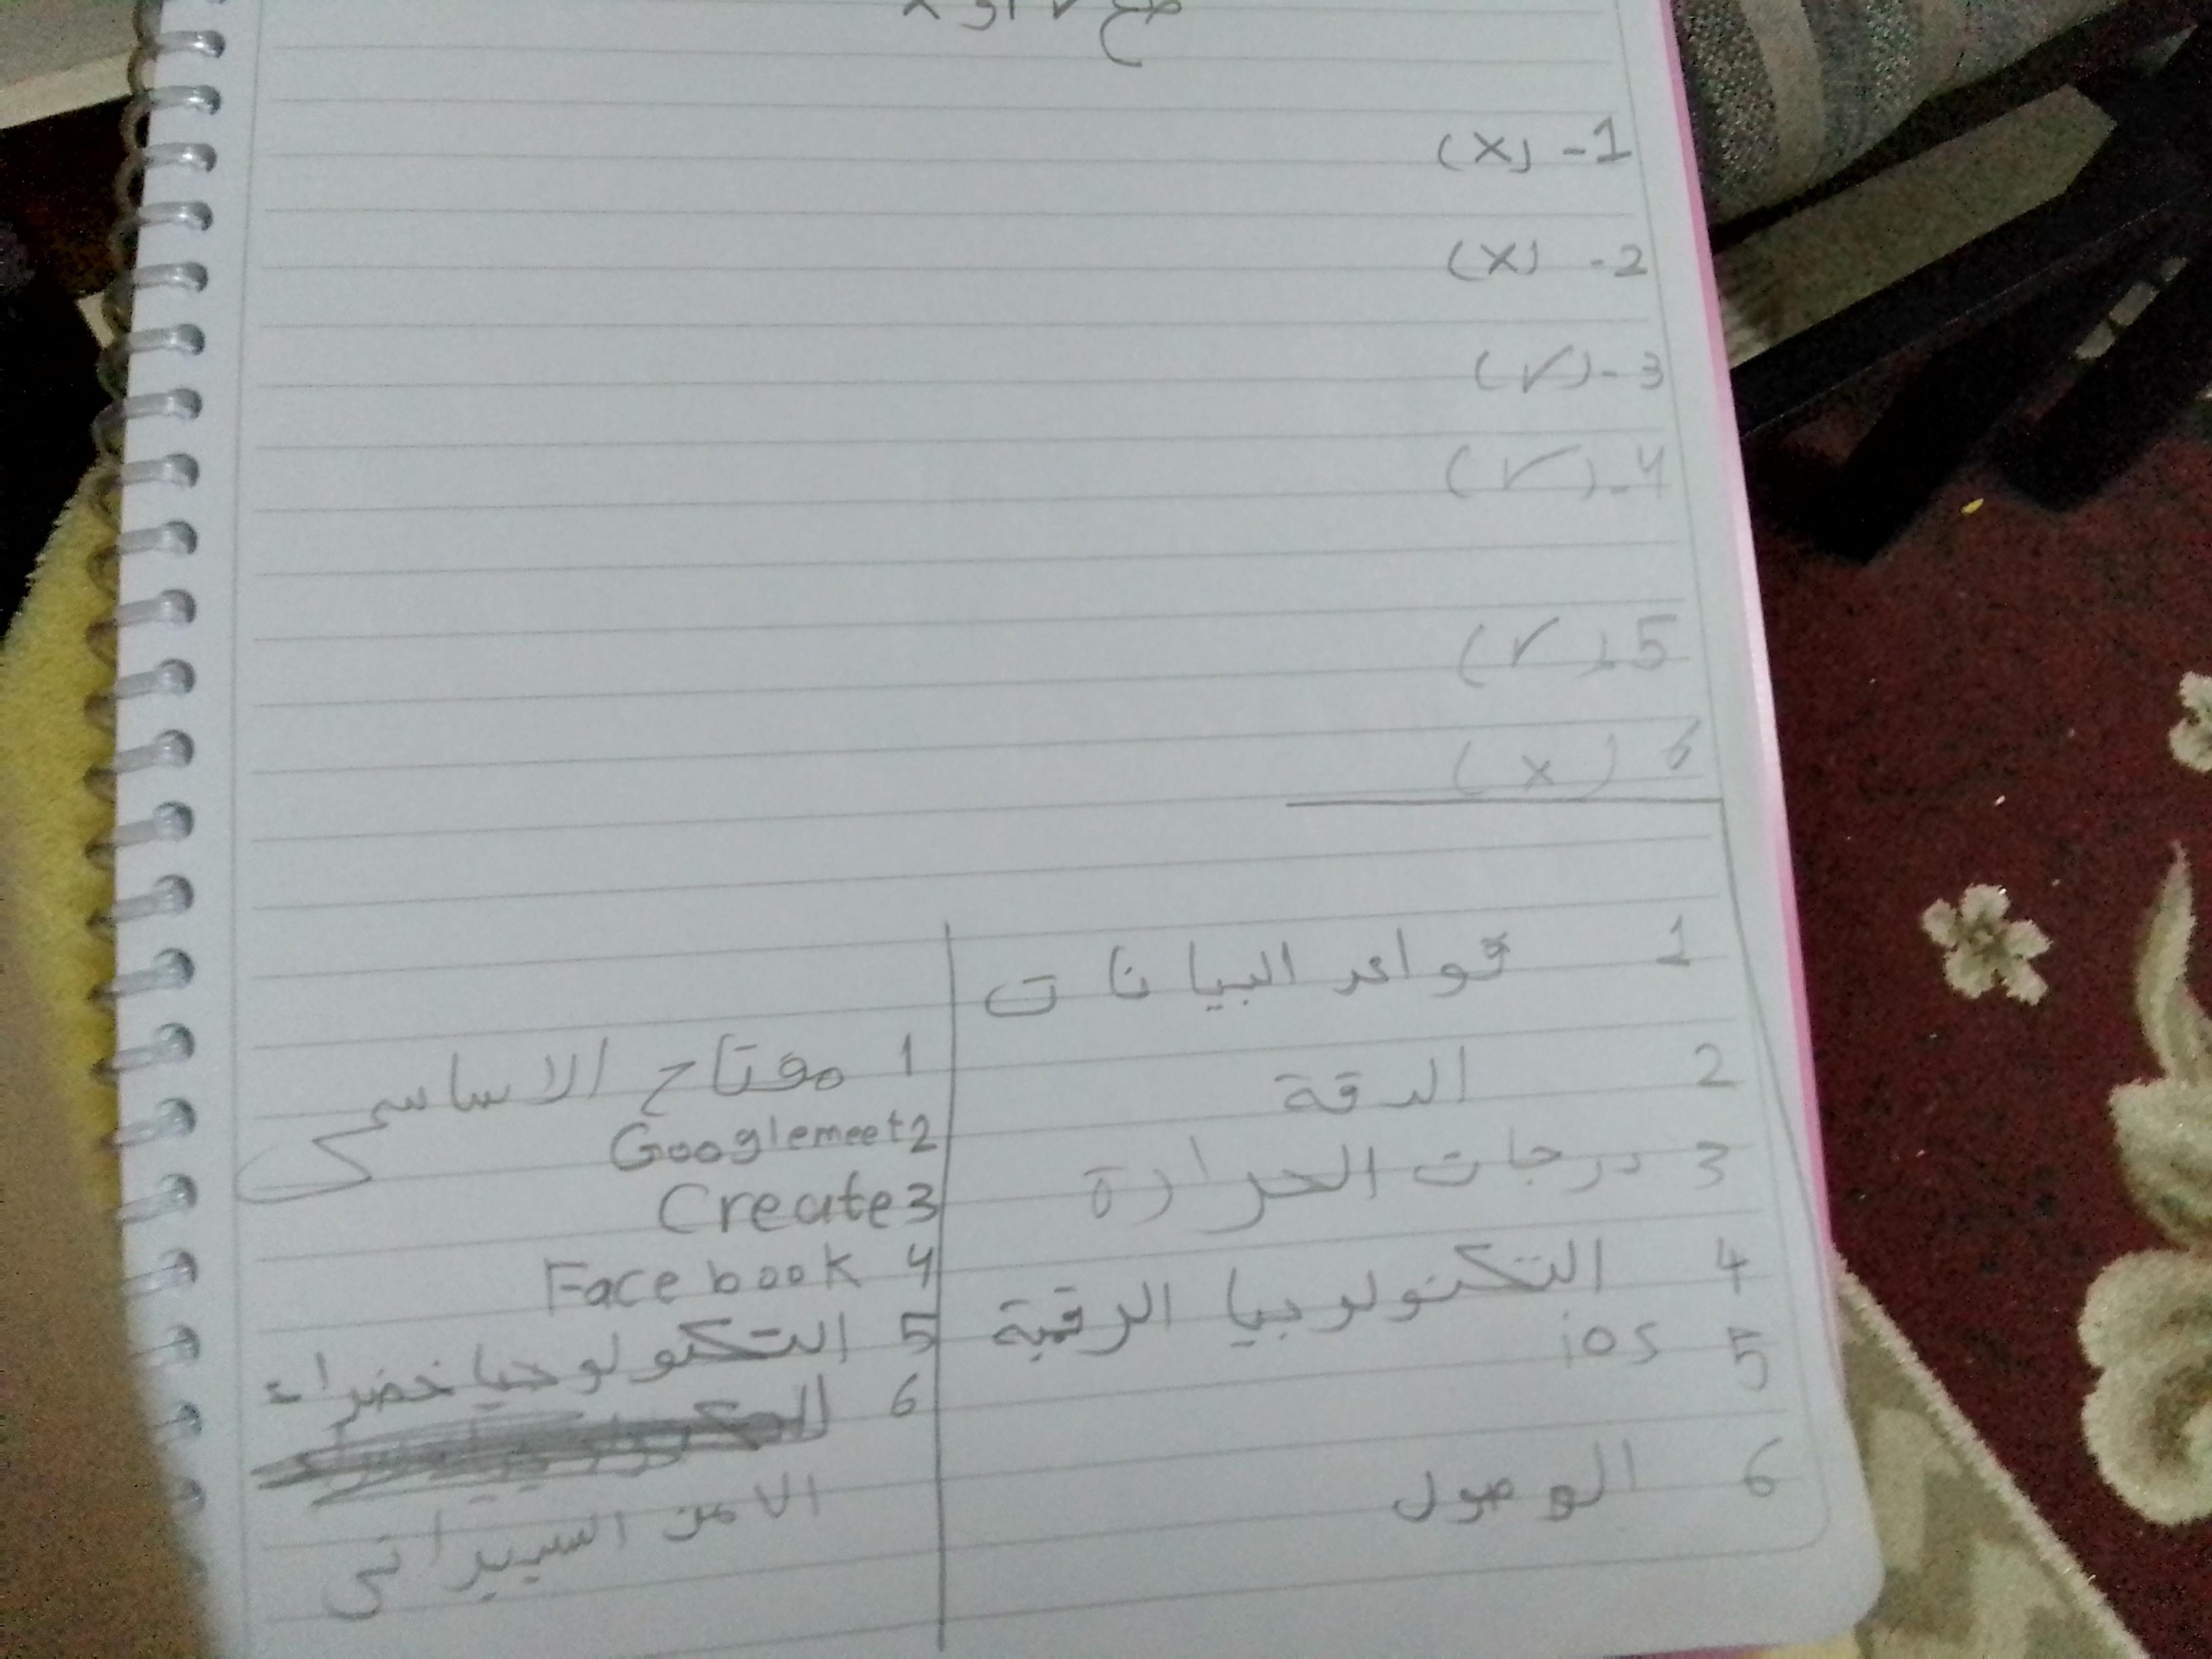 ضع ✓ او x
1- (x)
2- (x)
3- (✓)
4- (✓)
5- (✓)
6 (x)
1 قواعد البيانات
2 الدقة
3 درجات الحرارة
4 التكنولوجيا الرقمية
5 ios
6 الوصول
1 مفتاح الاساسي
Googlemeet 2
Create 3
Facebook 4
5 التكنولوجيا خضراء
6
الامن السيبراني